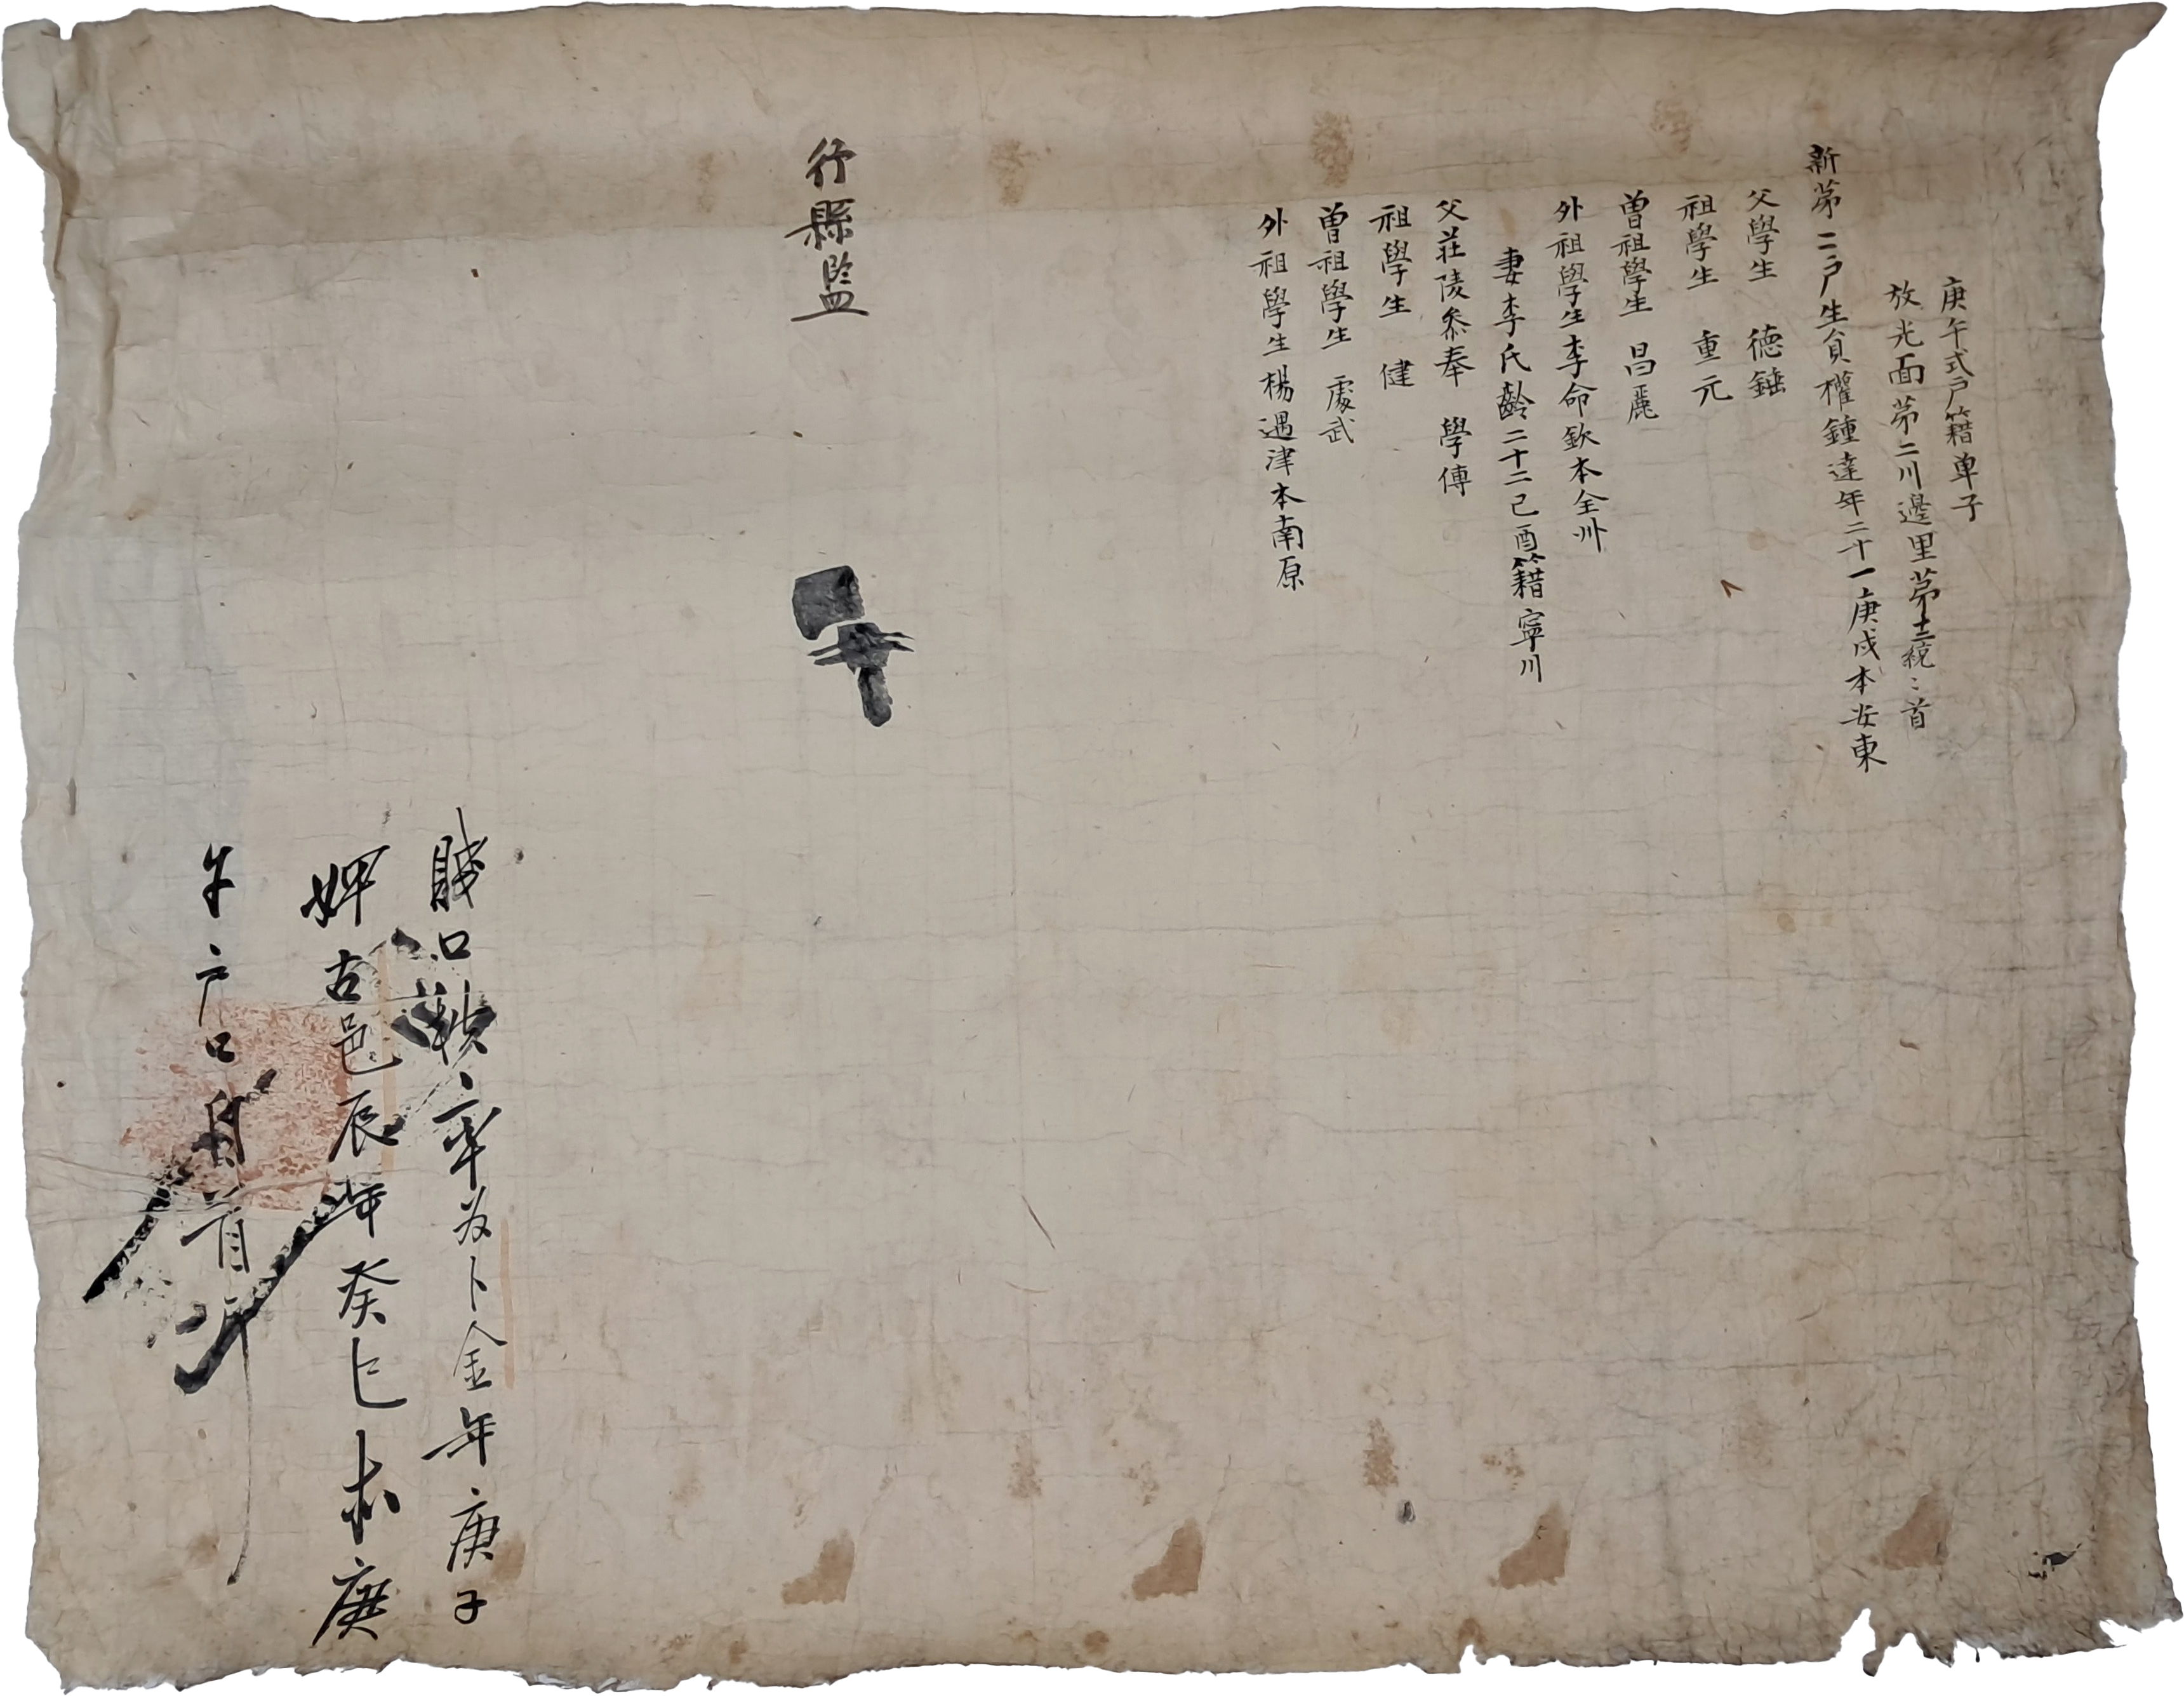 庚午式戶籍单子
放光面第二川邊里第十三統〻首
新第二戶生貟權鍾達年二十一庚戌本安東
父學生 德錘
祖學生 重元
曽祖學生 昌麗
外祖學生李命欽本全州
妻李氏齡二十二己酉籍寧川
父莊陵叅奉 學傳
祖學生 健
曽祖學生 處武
外祖學生楊遇津本南原
行縣監
賤口秩率奴卜金年庚子
婢古邑辰年癸巳 庚
午戶口 首